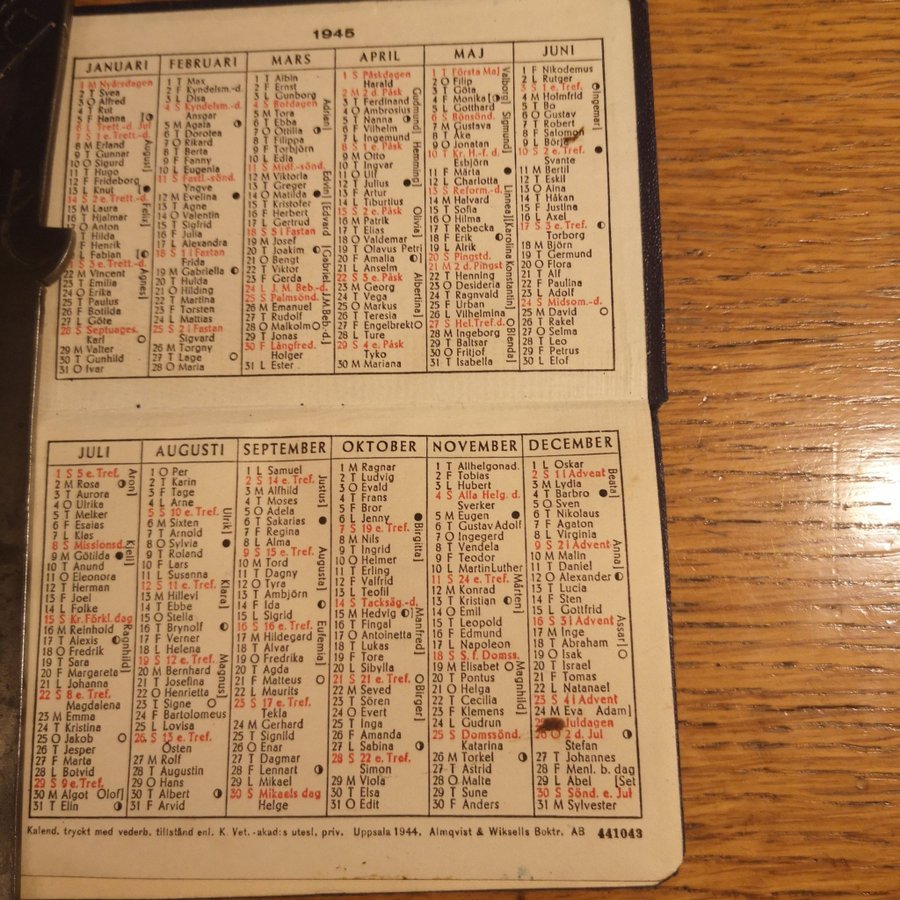 1945
JANUARI
1 M Nyårsdagen
2 T Svea
3 O Alfred
4 T Rut
5 F Hanna
6 L Trett.-d. Jul
7 S 1 e. Trett.-d.
8 M Erland
9 T Gunnar
10 O Sigurd
11 T Hugo
12 F Frideborg
13 L Knut
14 S 2 e. Trett.-d.
15 M Laura
16 T Hjalmar
17 O Anton
Hilda
F Henrik
L Fabian
S 3 e. Trett.-d.
22 M Vincent
23 T Emilia
24 O Erika
25 T Paulus
26 F Botilda
27 L Göte
28 S Septuages.
Karl
29 M Valter
30 T Gunhild
31 O Ivar
August]
Felix]
Agnes]
FEBRUARI
1 T Max
2 F Kyndelsm.-d.
3 L Disa
4 S Kyndelsm.-d.
Ansgar
5 M Agata
6 T Dorotea
7 O Rikard
8 T Berta
9 F Fanny
10 L Eugenia
11 S Fastl.-sönd.
Yngve
12 M Evelina
13 T Agne
14 O Valentin
15 T Sigfrid
16 F Julia
17 L Alexandra
18 S 1 i Fastan
Frida
19 M Gabriella
20 T Hulda
21 O Hilding
22 T Martina
23 F Torsten
24 L Mattias
25 S 2 i Fastan
Sigvard
26 M Torgny
27 T Lage
28 O Maria
MARS
1 T Albin
2 F Ernst
3 L Gunborg
4 S Botdagen
5 M Tora
6 T Ebba
7 O Ottilia
8 T Filippa
9 F Torbjörn
10 L Edla
11 S Midf.-sönd.
12 M Viktoria
13 T Greger
14 O Matilda
15 T Kristofer
16 F Herbert
17 L Gertrud
18 S 5 i Fastan
19 M Josef
20 T Joakim
21 O Bengt
22 T Viktor
23 F Gerda
24 L J. M. Beb.-d.
25 S Palmsönd.
26 M Emanuel
27 T Rudolf
28 O Malkolm
29 T Jonas
30 F Långfred.
Holger
31 L Ester
Adrian]
Edvin]
[Edvard
[Gabriel
J.M.Beb. d.]
APRIL
1 S Påskdagen
Harald
2 M 2 d. Påsk
3 T Ferdinand
4 O Ambrosius
5 T Nanna
6 F Vilhelm
7 L Ingemund
8 S 1 e. Påsk
9 M Otto
10 T Ingvar
11 O Ulf
12 T Julius
13 F Artur
14 L Tiburtius
15 S 2 e. Påsk
16 M Patrik
17 T Elias
18 O Valdemar
19 T Olavus Petri
20 F Amalia
21 L Anselm
22 S 3 e. Påsk
23 M Georg
24 T Vega
25 O Markus
26 T Teresia
27 F Engelbrekt
28 L Ture
29 S 4 e. Påsk
Tyko
30 M Mariana
Gudmund]
Hemming]
Olivia]
Albertina]
MAJ
1 T Första Maj
2 O Filip
3 T Göta
4 F Monika
5 L Gotthard
6 S Bönsönd.
7 M Gustava
8 T Åke
9 O Jonatan
10 T Kr. H.-f. d.
Esbjörn
11 F Märta
12 L Charlotta
13 S Reform.-d.
14 M Halvard
15 T Sofia
16 O Hilma
17 T Rebecka
18 F Erik
19 L Alrik
20 S Pingstd.
21 M 2 d. Pingst
22 T Henning
23 O Desideria
24 T Ragnvald
25 F Urban
26 L Vilhelmina
27 S Hel.Tref.d.
28 M Ingeborg
29 T Baltsar
30 O Fritjof
31 T Isabella
Valborg]
Sigmund]
Linnea]
[Karolina
Konstantin]
Blenda]
JUNI
1 F Nikodemus
2 L Rutger
3 S 1 e. Tref.
4 M Holmfrid
5 T Bo
6 O Gustav
7 T Robert
8 F Salomon
9 L Börje
10 S 2 e. Tref.
Svante
11 M Bertil
12 T Eskil
13 O Aina
14 T Håkan
15 F Justina
16 L Axel
17 S 3 e. Tref.
Torborg
18 M Björn
19 T Germund
20 O Flora
21 T Alf
22 F Paulina
23 L Adolf
24 S Midsom.-d.
25 M David
26 T Rakel
27 O Selma
28 T Leo
29 F Petrus
30 L Elof
Ingemar]
JULI
1 S 5 e. Tref.
2 M Rosa
3 T Aurora
4 O Ulrika
5 T Melker
6 F Esaias
7 L Klas
8 S Missionsd.
9 M Götilda
10 T Anund
11 O Eleonora
12 T Herman
13 F Joel
14 L Folke
15 S Kr. Förkl. dag
16 M Reinhold
17 T Alexis
18 O Fredrik
19 T Sara
20 F Margareta
21 L Johanna
22 S 8 e. Tref.
Magdalena
23 M Emma
24 T Kristina
25 O Jakob
26 T Jesper
27 F Marta
28 L Botvid
29 S 9 e. Tref.
30 M Algot Olof]
31 T Elin
Aron]
Kjell]
Ragnhild]
AUGUSTI
1 O Per
2 T Karin
3 F Tage
4 L Arne
5 S 10 e. Tref.
6 M Sixten
7 T Arnold
8 O Sylvia
9 T Roland
10 F Lars
11 L Susanna
12 S 11 e. Tref.
13 M Hillevi
14 T Ebbe
15 O Stella
16 T Brynolf
17 F Verner
18 L Helena
19 S 12 e. Tref.
20 M Bernhard
21 T Josefina
22 O Henrietta
23 T Signe
24 F Bartolomeus
25 L Lovisa
26 S 13 e. Tref.
Östen
27 M Rolf
28 T Augustin
29 O Hans
30 T Albert
31 F Arvid
Ulrik]
Klara]
Magnus]
SEPTEMBER
1 L Samuel
2 S 14 e. Tref.
3 M Alfhild
4 T Moses
5 O Adela
6 T Sakarias
7 F Regina
8 L Alma
9 S 15 e. Tref.
10 M Tord
11 T Dagny
12 O Tyra
13 T Ambjörn
14 F Ida
15 L Sigrid
16 S 16 e. Tref.
17 M Hildegard
18 T Alvar
19 O Fredrika
20 T Agda
21 F Matteus
22 L Maurits
23 S 17 e. Tref.
Tekla
24 M Gerhard
25 T Signild
26 O Enar
27 T Dagmar
28 F Lennart
29 L Mikael
30 S Mikaels dag
Helge
Justus]
Augusta]
Eufemia]
OKTOBER
1 M Ragnar
2 T Ludvig
3 O Evald
4 T Frans
5 F Bror
6 L Jenny
7 S 19 e. Tref.
8 M Nils
9 T Ingrid
10 O Helmer
11 T Erling
12 F Valfrid
13 L Teofil
14 S Tacksäg.-d.
15 M Hedvig
16 T Fingal
17 O Antoinetta
18 T Lukas
19 F Tore
20 L Sibylla
21 S 21 e. Tref.
22 M Seved
23 T Sören
24 O Evert
25 T Inga
26 F Amanda
27 L Sabina
28 S 22 e. Tref.
Simon
29 M Viola
30 T Elsa
31 O Edit
Birgitta]
Manfred]
Birger]
NOVEMBER
1 T Allhelgonad.
2 F Tobias
3 L Hubert
4 S Alla Helg. d.
Sverker
5 M Eugen
6 T Gustav Adolf
7 O Ingegerd
8 T Vendela
9 F Teodor
10 L Martin Luther
11 S 24 e. Tref.
12 M Konrad
13 T Kristian
14 O Emil
15 T Leopold
16 F Edmund
17 L Napoleon
18 S S. f. Domss.
19 M Elisabet
20 T Pontus
21 O Helga
22 T Cecilia
23 F Klemens
24 L Gudrun
25 S Domssönd.
Katarina
26 M Torkel
27 T Astrid
28 O Malte
29 T Sune
30 F Anders
Mårten]
Magnhild]
DECEMBER
1 L Oskar
2 S 1 i Advent
3 M Lydia
4 T Barbro
5 O Sven
6 T Nikolaus
7 F Agaton
8 L Virginia
9 S 2 i Advent
10 M Malin
11 T Daniel
12 O Alexander
13 T Lucia
14 F Sten
15 L Gottfrid
16 S 3 i Advent
17 M Inge
18 T Abraham
19 O Isak
20 T Israel
21 F Tomas
22 L Natanael
23 S 4 i Advent
24 M Eva Adam]
Juldagen
26 O 2 d. Jul
Stefan
27 T Johannes
28 F Menl. b. dag
29 L Abel [Set
30 S Sönd. e. Jul
31 M Sylvester
Beata]
Anna]
Assar]
Kalend. tryckt med vederb. tillstånd enl. K. Vet. -akad:s utesl. priv. Uppsala 1944. Almqvist & Wiksells Boktr. AB 441043